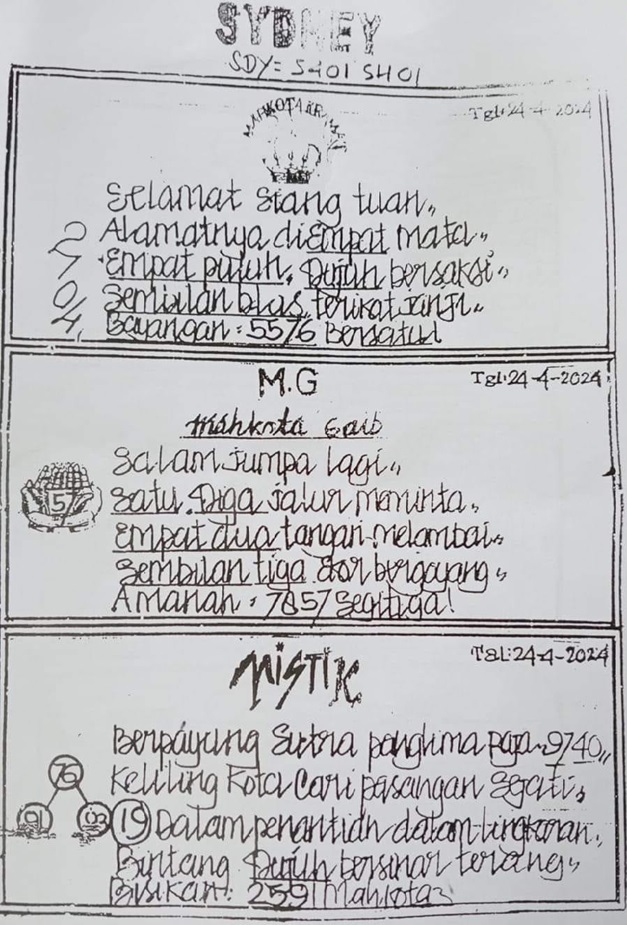 SYDNEY
SDY= SHOI SHOI
MAHKOTA KRAMAT
Tgl:24-4-2024
Selamat Siang tuan,,
Alamatnya diEmpat mata,,
Empat pujuh, Dujuh bersaksi,,
Sembilan blas terikat janji,,
Bayangan : 5576 Bersatu!
M.G
Tgl:24-4-2024
Mahkota Gaib
57
Salam jumpa lagi,,
Satu. Diga jalur meminta,,
Empat dua tangan melambai,,
Sembilan tiga Ekor bergoyang,,
Amanah : 7857 Segitiga!
MiSTiK
Tgl:24-4-2024
Berpayung Sutra panglima Raja 9740,,
76
Keliling Kota Cari pasangan Sejati,,
19 Dalam penantian dalam lingkaran,,
Bintang Dujuh bersinar terang,,
Bisikan: 2591 Mahkota